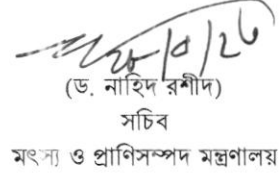 (ড. নাহিদ রশীদ)
সচিব
মৎস্য ও প্রাণিসম্পদ মন্ত্রণালয়